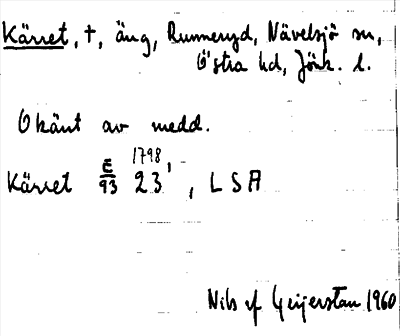 Kärret, †, äng, Runneryd, Nävelsjö sn,
Östra hd, Jönk. l.
Okänt av medd.
Kärret E/93 1798, 23, LSA
Nils af Geijerstam 1960